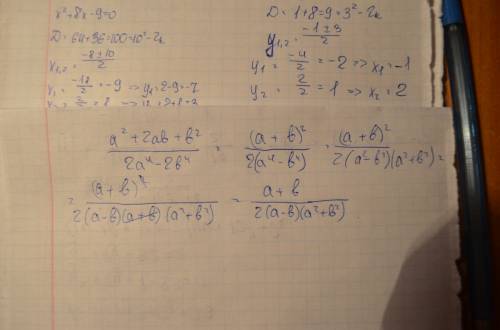 x²+8x-9=0
D=64+36=100=10²-2к
x₁,₂=(-8±10)/2
x₁=-18/2=-9 => y₁=2-9=-7
D=1+8=9=3²-2к
y₁,₂=(-1±3)/2
y₁=-4/2=-2 => x₁=-1
y₂=2/2=1 => x₂=2
(a²+2ab+b²)/(2a⁴-2b⁴) = (a+b)²/(2(a⁴-b⁴)) = (a+b)²/(2(a²-b²)(a²+b²)) =
= (a+b)²/(2(a-b)(a+b)(a²+b²)) = (a+b)/(2(a-b)(a²+b²))